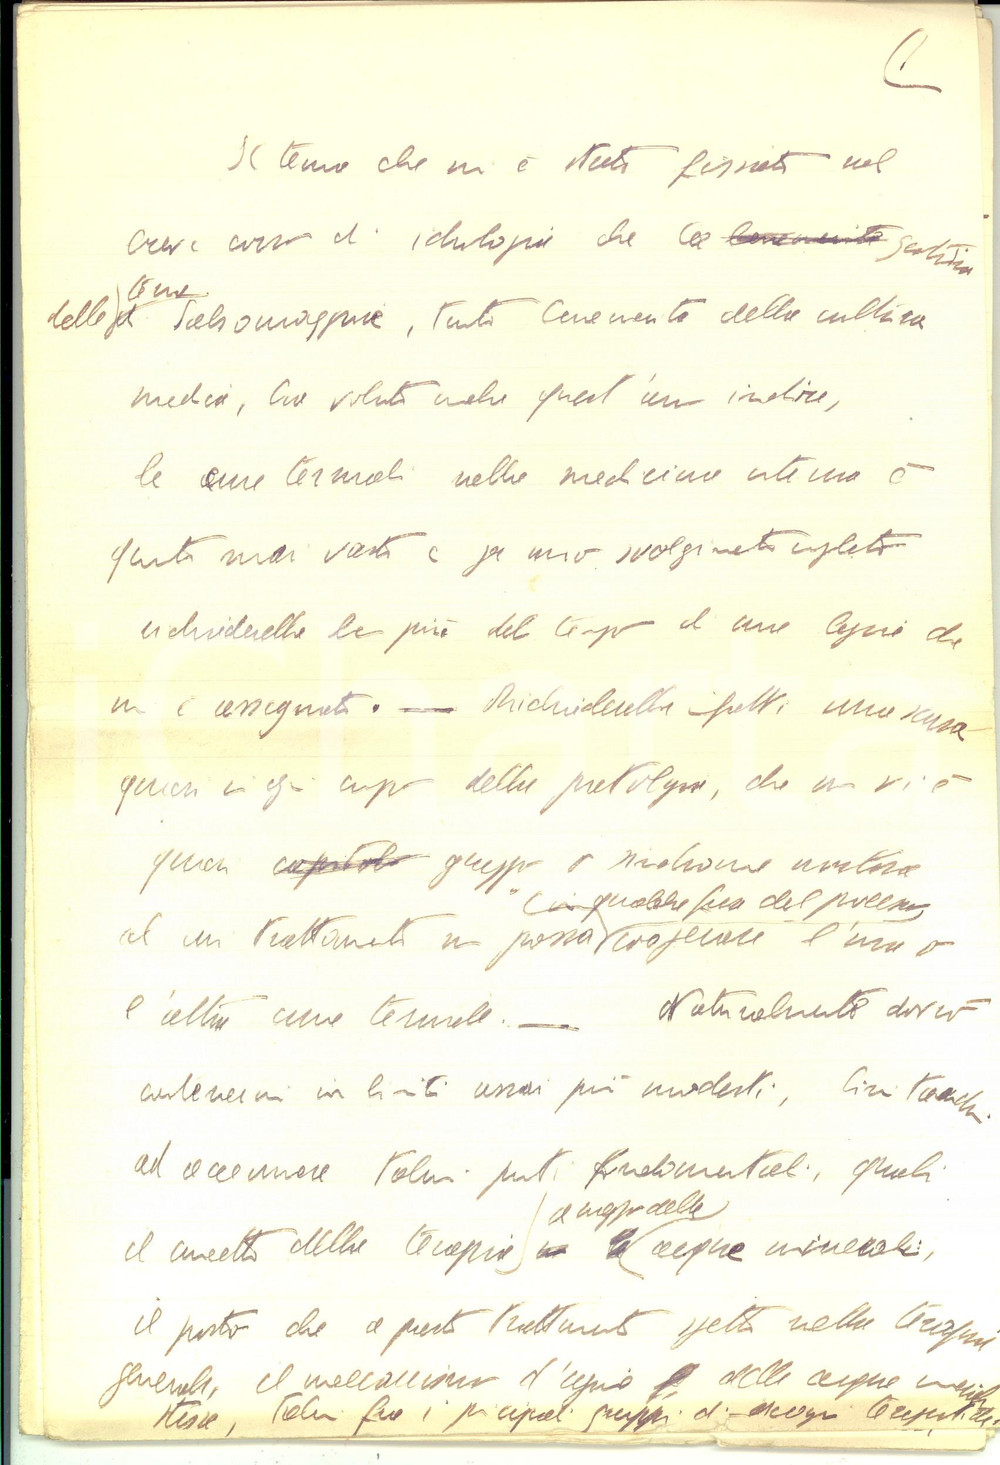 1.
Il tema che mi è stato fissato nel
breve corso di idrologia che la benemerita Gestione
delle terme di Salsomaggiore, tanto benemerita della cultura
medica, ha voluto anche quest'anno indire,
le cure termali nella medicina interna è
quanto mai vasto e per uno svolgimento completo
richiederebbe ben più del tempo di una lezione che
mi è assegnato. — Richiederebbe infatti una scorsa
quasi in ogni campo della patologia, che non vi è
quasi capitolo gruppo o sindrome morbosa
al cui trattamento non possa in qualche fase del processo cooperare l'una o
l'altra cura termale. — Naturalmente dovrò
contenermi in limiti assai più modesti, limitandomi
ad accennare taluni punti fondamentali, quali
il concetto della terapia a mezzo delle acque minerali,
il posto che a questo trattamento spetta nella terapia
generale, il meccanismo d'azione delle acque minerali
stesse, talun fra i principali gruppi di